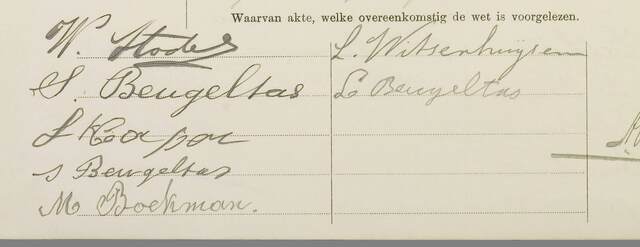 Waarvan akte, welke overeenkomstig de wet is voorgelezen.
W. Stodel
S. Beugeltas
S
s Beugeltas
M Boekman.
L. Witsenhuijsen
L Beugeltas